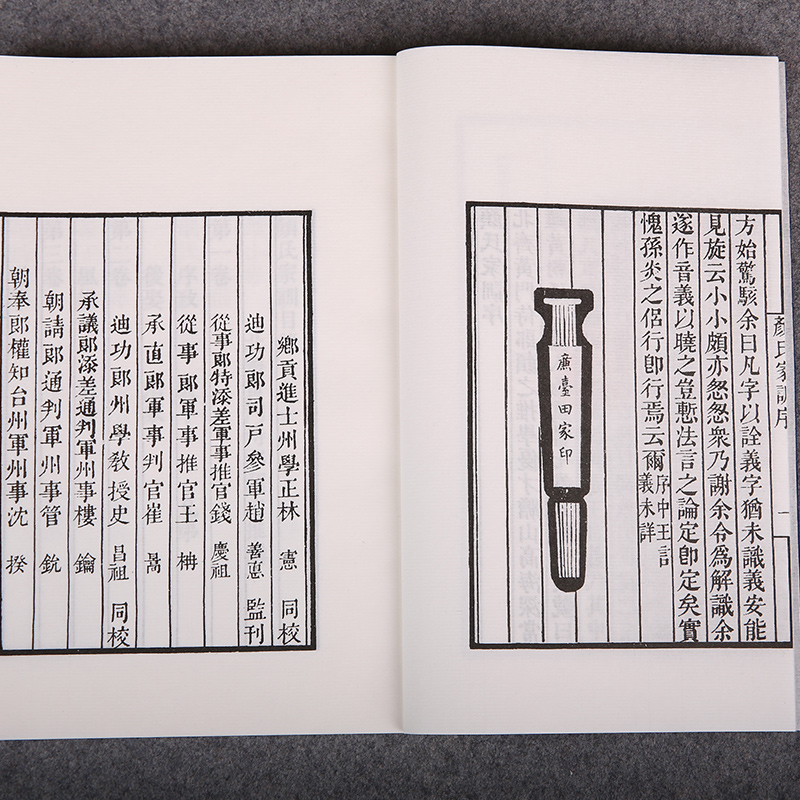 顏氏家訓序
一
方始驚駭余曰凡字以詮義字猶未識義安能
見旋云小小頗亦怱怱衆乃謝余令爲解識余
遂作音義以曉之豈慙法言之論定卽定矣實
愧孫炎之侶行卽行焉云爾
序中王言
義未詳
廉臺田家印
鄉貢進士州學正林 憲 同校
迪功郎司戶參軍趙 善惪 監刊
從事郎特添差軍事推官錢 慶祖
從事郎軍事推官王 柟
承直郎軍事判官崔 暠
迪功郎州學敎授史 昌祖 同校
承議郎添差通判軍州事樓 鑰
朝請郎通判軍州事管 銳
朝奉郎權知台州軍州事沈 揆